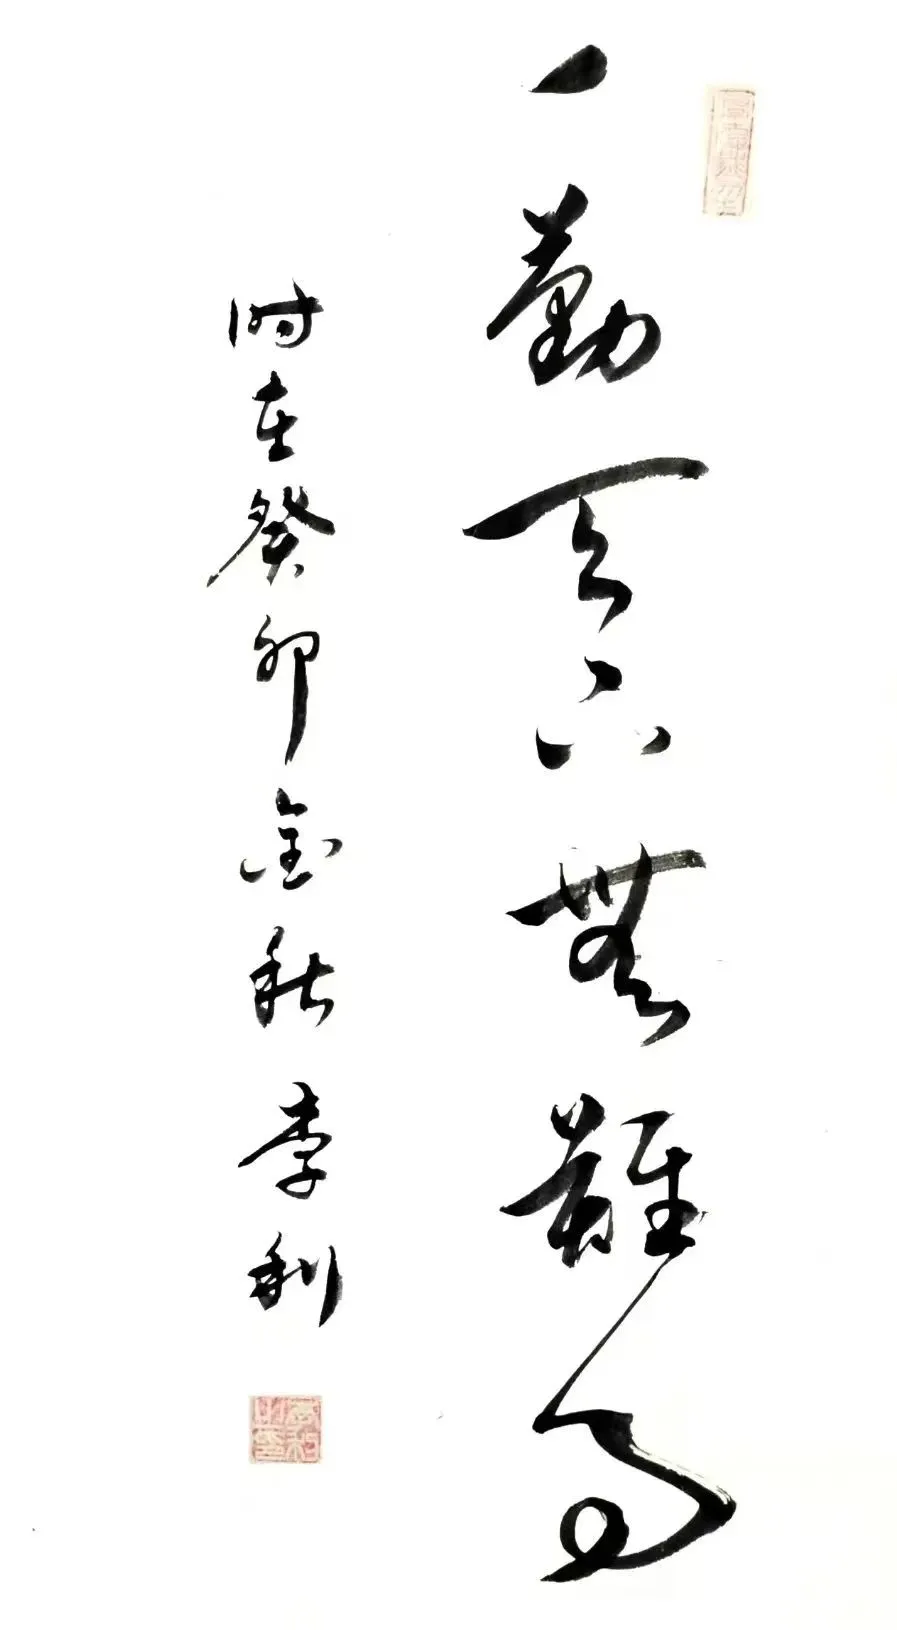 一勤天下無難事
时在癸卯金秋 李利